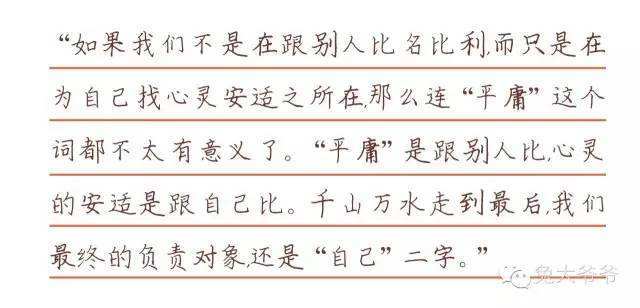 “如果我们不是在跟别人比名比利,而只是在
为自己找心灵安适之所在,那么连“平庸”这个
词都不太有意义了。“平庸”是跟别人比,心灵
的安适是跟自己比。千山万水走到最后,我们
最终的负责对象,还是“自己”二字。”
兔大爷爷